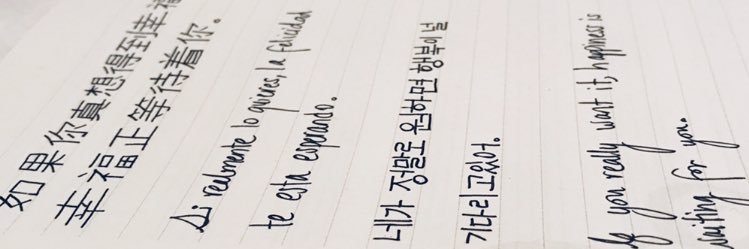 如果你真想得到幸福
幸福正等待着你。
Si realmente lo quieres, la felicidad
te esta esperando.
네가 정말로 원하면 행복이 널
기다리고 있어.
If you really want it, happiness is
waiting for you.